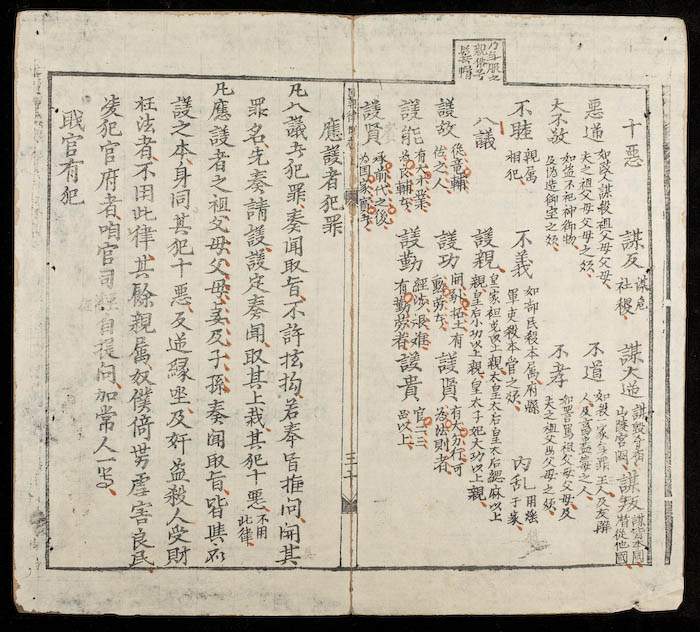 乃五服之親俗号長安情
十惡 謀反 謀危社稷 謀大逆 謀毀宗廟山陵宮闕 謀叛 謀背本國潛從他國
惡逆 如毆謀殺祖父母父母夫之祖父母父母之類 不道 如殺一家非死罪三人及支解人及畜蠱毒之人
大不敬 如盜不祀神御物及偽造御宝之類 不孝 如詈罵祖父母父母及夫之祖父母父母之類
不睦 親属相犯 不義 如部民殺本属府縣軍吏殺本管之類 內乱
八議 議親 皇家袒免以上親太皇太后皇太后緦麻以上親皇后小功以上親皇太子妃大功以上親
議故 從竜輔佐之人 議功 開邦拓土有勳勞者 議賢 有大行可為法則者
議能 有大才業為民輔者 議勤 經涉艱難有勤勞者 議貴 官三品以上
議賓 承前代之後為国家賓者
應議者犯罪
凡八議者犯罪奏聞取旨不許擅拘若奉旨推問開其
罪名先奏請議議定奏聞取其上裁其犯十惡不用此律
凡應議者之祖父母父母妻及子孫奏聞取旨皆與不
議之本身同其犯十惡反逆緣坐及奸盗殺人受財
枉法者不用此律其餘親属奴僕倚势虐害良民
凌犯官府者咱官司徑自提問加常人一等
職官有犯
三十